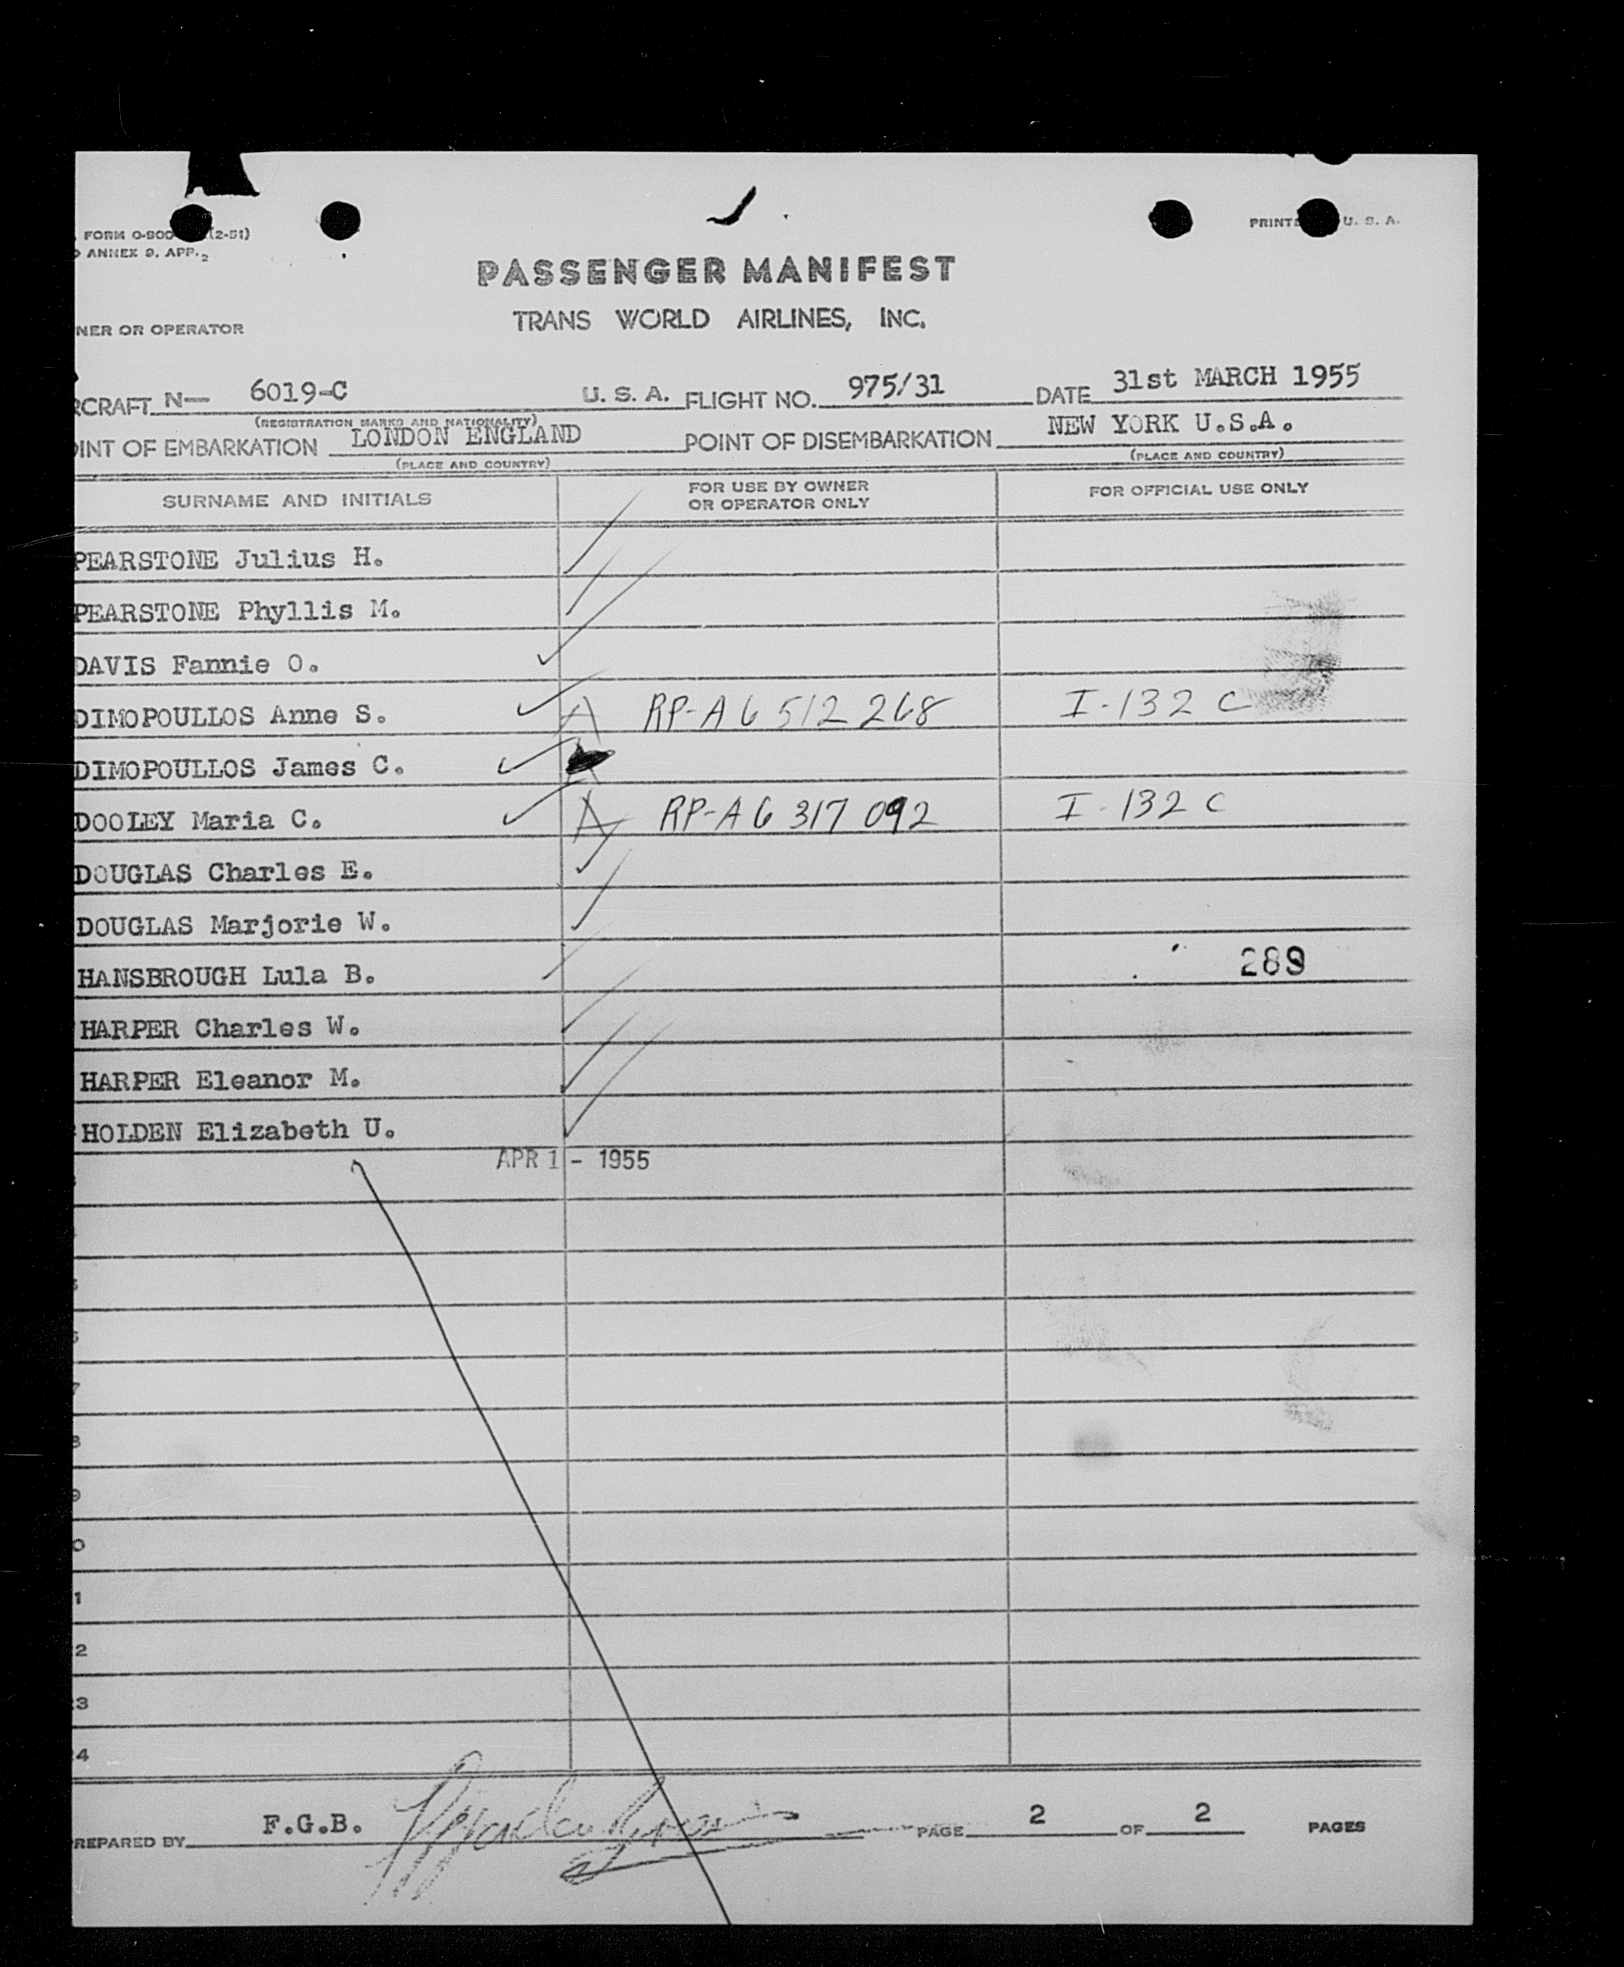 FORM O-800 (2-51)
ANNEX 9, APP. 2
PRINT U. S. A.
PASSENGER MANIFEST
TRANS WORLD AIRLINES, INC.
NER OR OPERATOR
RCRAFT N- 6019-C U. S. A. FLIGHT NO. 975/31 DATE 31st MARCH 1955
(REGISTRATION MARKS AND NATIONALITY)
OINT OF EMBARKATION LONDON ENGLAND POINT OF DISEMBARKATION NEW YORK U.S.A.
(PLACE AND COUNTRY) (PLACE AND COUNTRY)
SURNAME AND INITIALS FOR USE BY OWNER OR OPERATOR ONLY FOR OFFICIAL USE ONLY
PEARSTONE Julius H.
PEARSTONE Phyllis M.
DAVIS Fannie O.
DIMOPOULLOS Anne S. A RP-A6 512 268 I-132 C
DIMOPOULLOS James C.
DOOLEY Maria C. A RP-A6 317 092 I-132 C
DOUGLAS Charles E.
DOUGLAS Marjorie W.
HANSBROUGH Lula B. 289
HARPER Charles W.
HARPER Eleanor M.
HOLDEN Elizabeth U.
APR 1 - 1955
7
8
9
0
1
2
3
4
REPARED BY F.G.B. PAGE 2 OF 2 PAGES